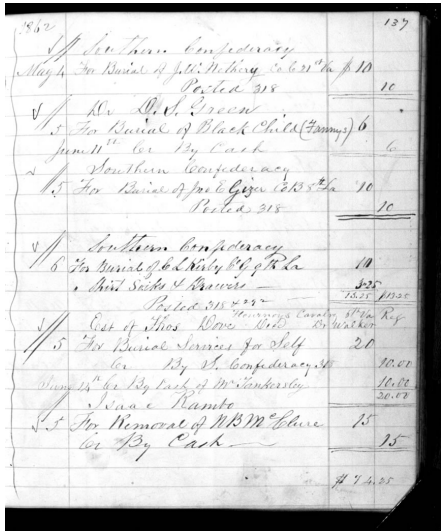 1862 137
" Southern Confederacy
May 4 For Burial of J.W. Co C 21st Va $ 10
Posted 318 10
" Dr D. S. Green
" 5 For Burial of Black Child (Fannys) 6
June 11st Cr By Cash 6
Southern Confederacy
" 5 For Burial of Jno E Co B 8th La 10
Posted 318 10
" Southern Confederacy
" 6 For Burial of C L Kirby Co G 9th La 10
" Shirt Socks & Drawers — 3.25
Posted 318 & 292 13.25 $13.25
Cavalry 51 Va Reg
" Est of Thos Dove Decd Dr Walker
" 5 For Burial Services for Self 20
Cr By S. Confederacy 318 10.00
June 14th Cr By Cash of Mr Tankersley 10.00
20.00
" Isaac Rambo
" 5 For Removal of N B McClure 15
Cr By Cash — 15
$ 74.25